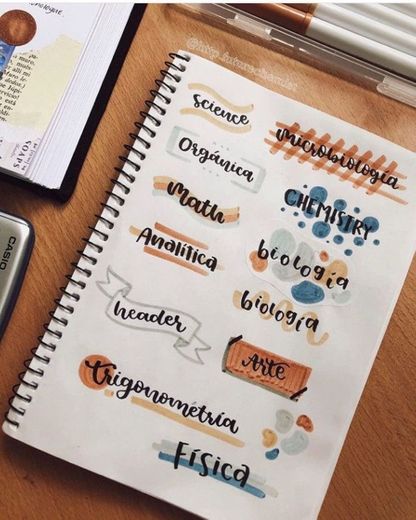 science
Orgánica
Math
Analítica
header
Trigonometría
Física
microbiología
CHEMISTRY
biología
biología
Arte
CASIO
SOAPS